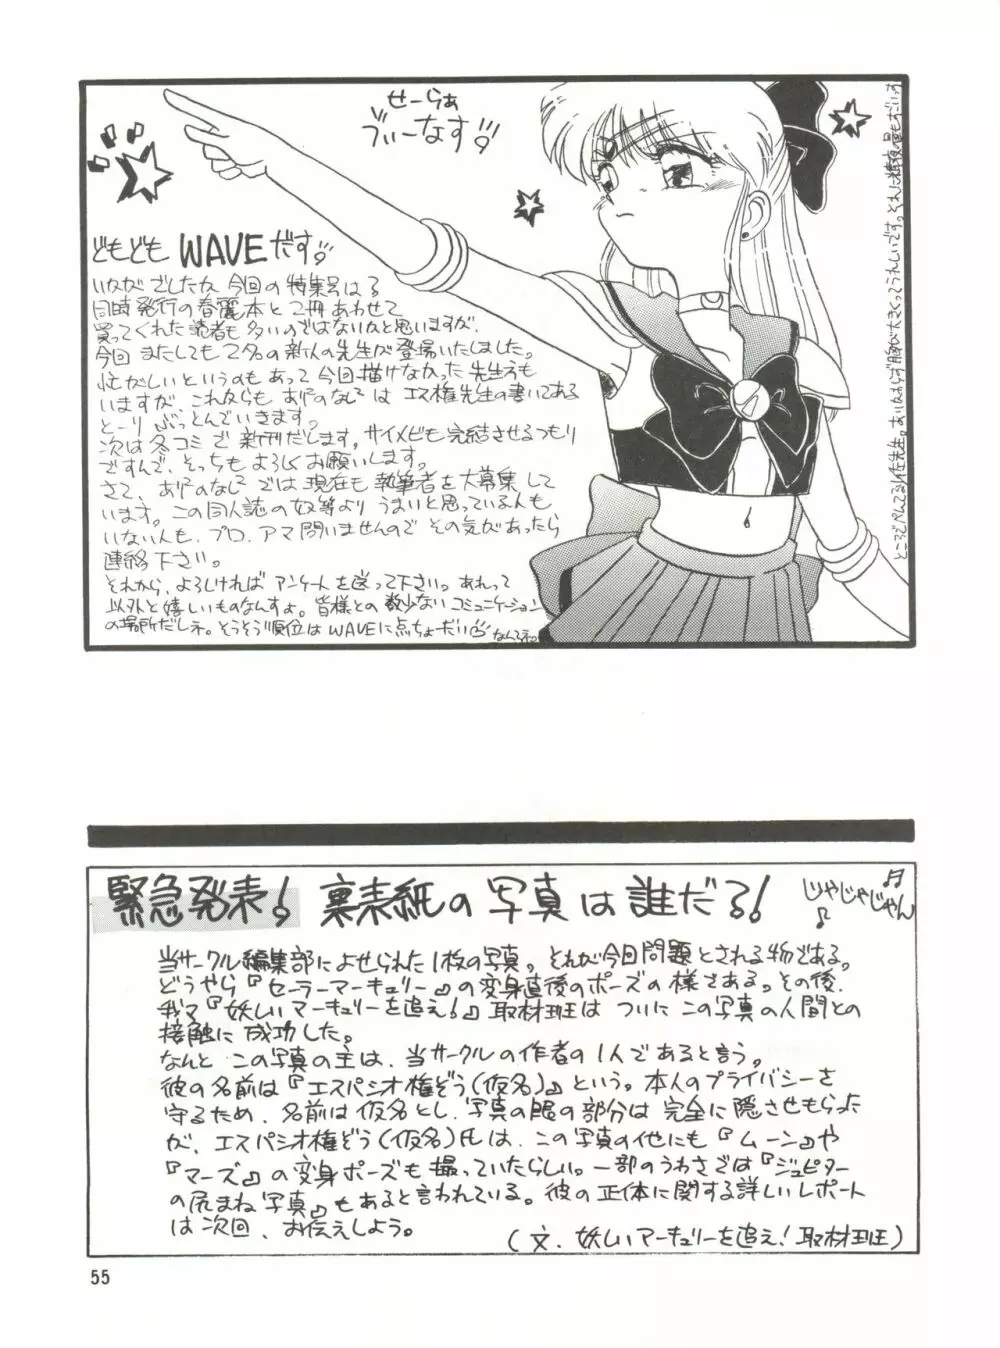 せーらぁ
ゔぃーなす!
どもども WAVEだす!
いかがでしたか 今回の特集号は?
同時発行の春麗本と2冊あわせて
買ってくれた読者も多いのではないかと思いますが、
今回 またしても2名の新人の先生が登場いたしました。
忙がしいというのもあって今回描けなかった先生方も
いますが、これからも ありのなしは エス権先生の書いてある
とーり ぶっとんでいきます。
次は冬コミで新刊だします。サイメビも完結させるつもり
ですんで、そっちも よろしくお願いします。
さて、では現在も執筆者を大募集して
います。この同人誌の奴等より うまいと思っている人も
いない人も、プロ、アマ問いませんので その気があったら
連絡下さい。
それから、よろしければ アンケートを送って下さい。あれって
以外と嬉しいものなんすよ。皆様との数少ないコミュニケーション
の場所だしネ。そうそう順位は WAVEに点ちょーだい なんてネっ
緊急発表! 裏表紙の写真は誰だろ!
じゃじゃじゃん
当サークル編集部によせられた1枚の写真。それが今回問題とされる物である。
どうやら『セーラーマーキュリー』の変身直後のポーズの様さある。その後、
我々『妖しいマーキュリーを追え!』取材班は ついに この写真の人間との
接触に成功した。
なんと この写真の主は、当サークルの作者の1人であると言う。
彼の名前は『エスパシオ権ぞう(仮名)』という。本人のプライバシーを
守るため、名前は仮名とし、写真の眼の部分は完全に隠させもらった
が、エスパシオ権ぞう(仮名)氏は、この写真の他にも『ムーン』や
『マーズ』の変身ポーズも撮っていたらしい。一部のうわさでは『ジュピター
の尻まね写真』もあると言われている。彼の正体に関する詳しいレポート
は次回、お伝えしよう。
(文、妖しいマーキュリーを追え! 取材班)
55